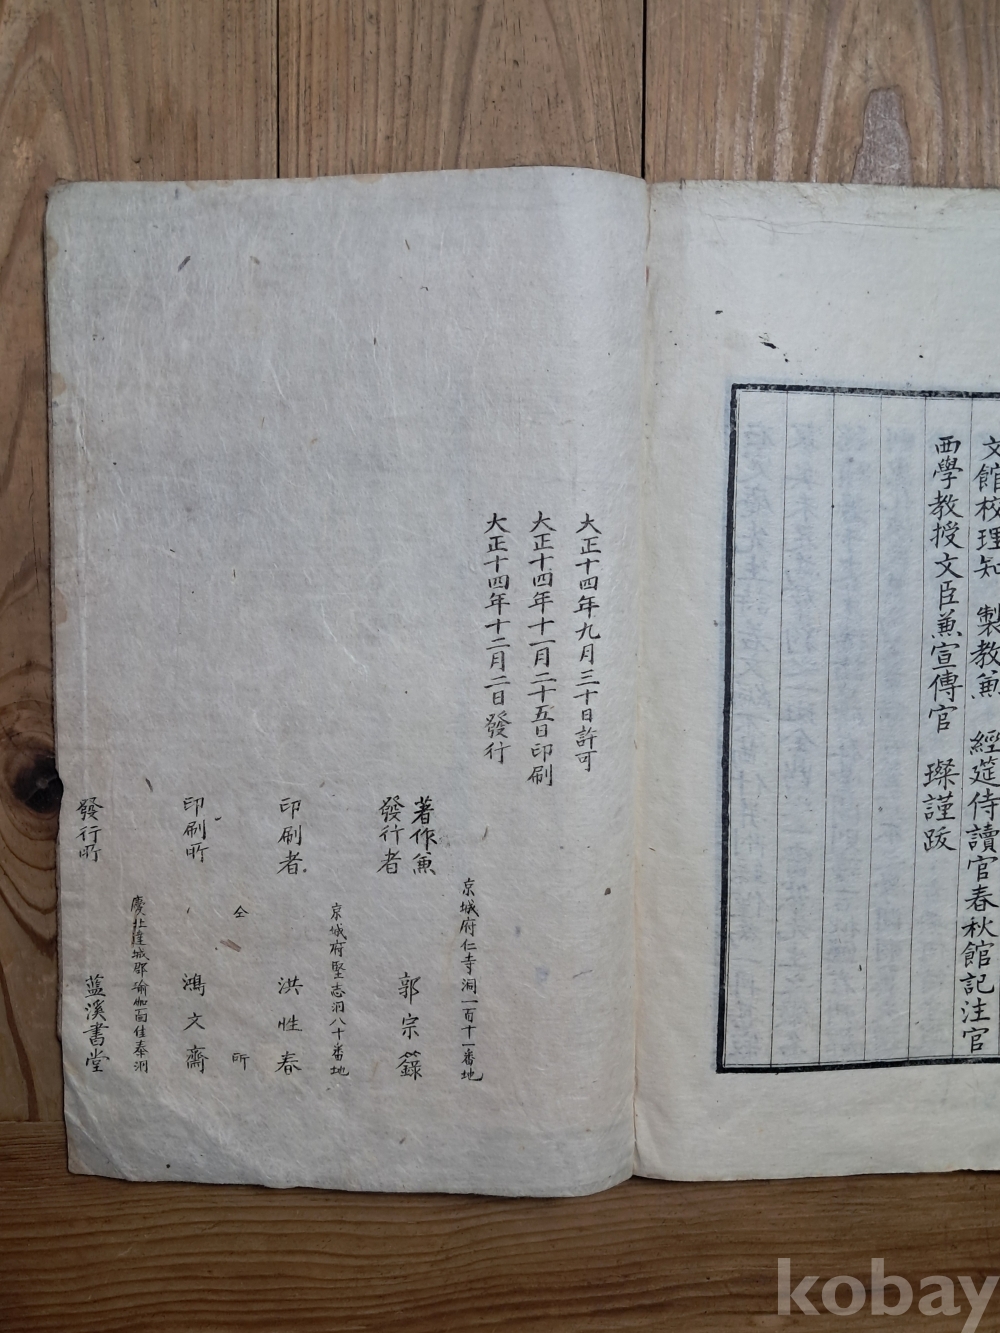 文館校理知 製教兼 經筵侍讀官春秋館記注官
西學教授文臣兼宣傳官 璨謹跋
大正十四年九月三十日許可
大正十四年十一月二十五日印刷
大正十四年十二月二日發行
京城府仁寺洞一百十一番地
著作兼
發行者 郭宗籙
京城府堅志洞八十番地
印刷者 洪性春
仝所
印刷所 鴻文齋
慶北達城郡瑜伽面佳泰洞
發行所 藍溪書堂
kobay